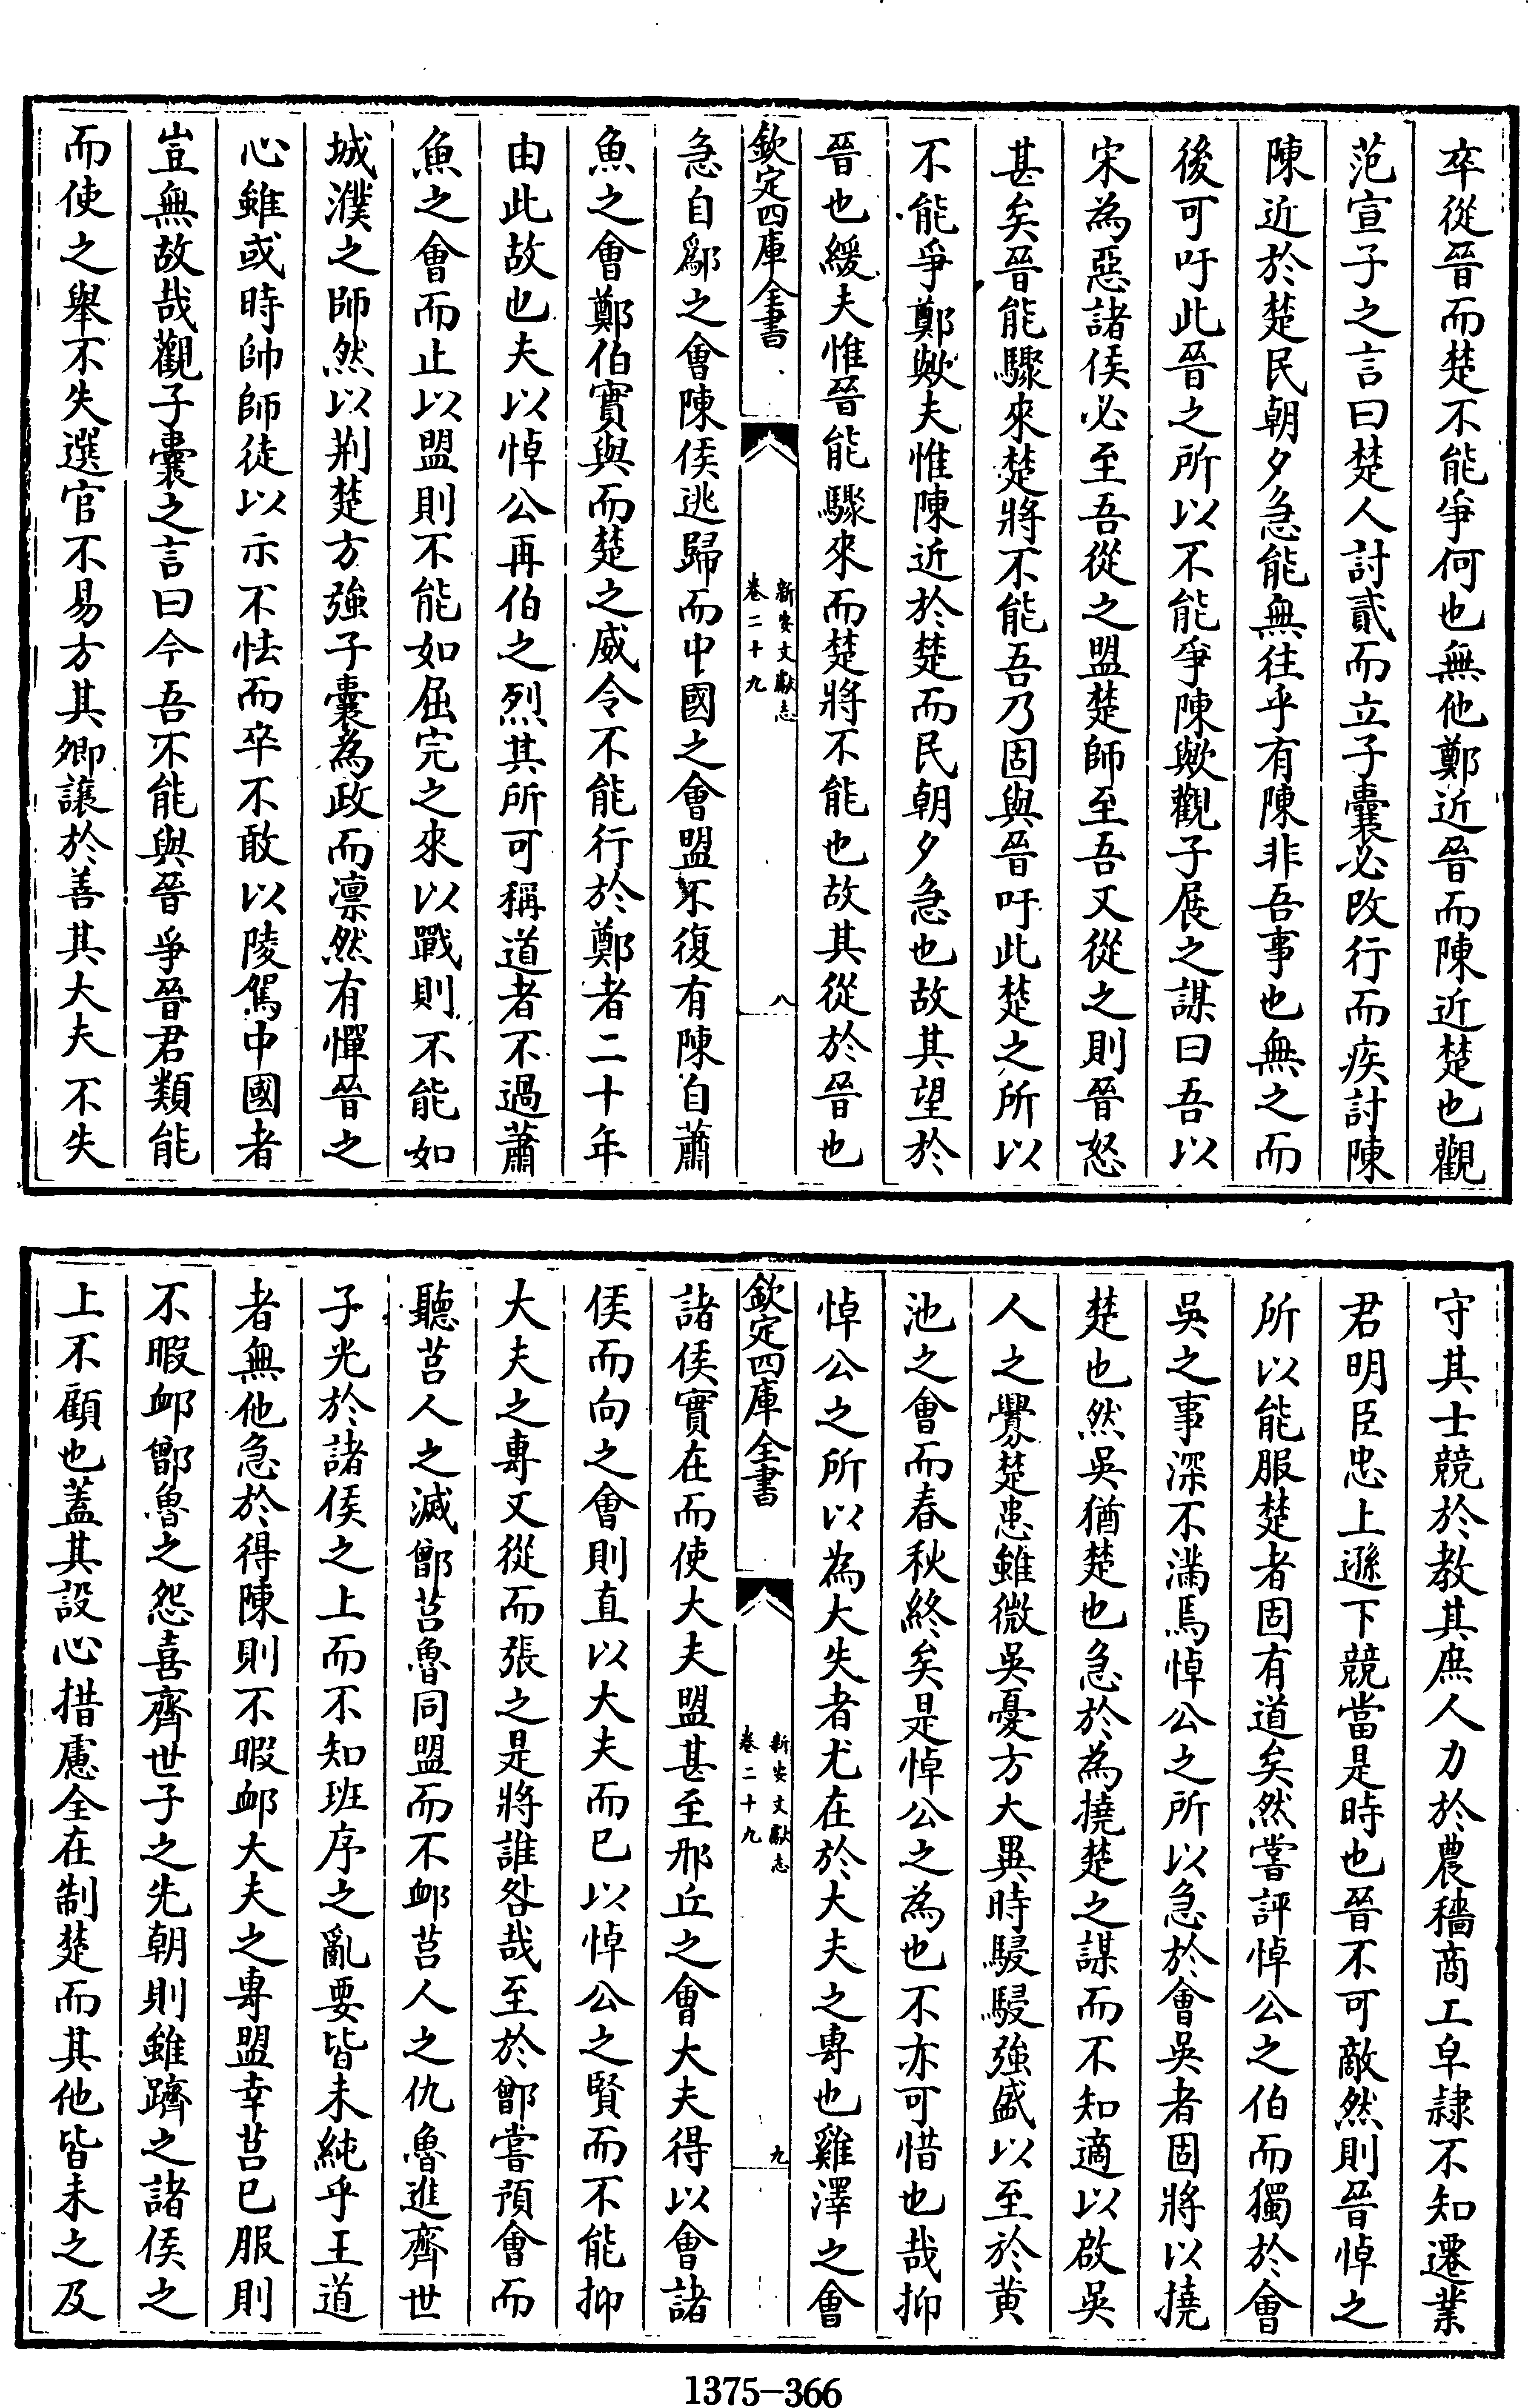 卒從晉而楚不能爭何也無他鄭近晉而陳近楚也觀
范宣子之言曰楚人討貳而立子囊必改行而疾討陳
陳近於楚民朝夕急能無往乎有陳非吾事也無之而
後可吁此晉之所以不能爭陳歟觀子展之謀曰吾以
宋為惡諸侯必至吾從之盟楚師至吾又從之則晉怒
甚矣晉能驟來楚將不能吾乃固與晉吁此楚之所以
不能爭鄭歟夫惟陳近於楚而民朝夕急也故其望於
晉也緩夫惟晉能驟來而楚將不能也故其從於晉也
欽定四庫全書
新安文獻志
卷二十九
八
急自鄬之會陳侯逃歸而中國之會盟不復有陳自蕭
魚之會鄭伯實與而楚之威令不能行於鄭者二十年
由此故也夫以悼公再伯之烈其所可稱道者不過蕭
魚之會而止以盟則不能如屈完之來以戰則不能如
城濮之師然以荆楚方強子囊為政而凛然有憚晉之
心雖或時帥師徒以示不怯而卒不敢以陵駕中國者
豈無故哉觀子囊之言曰今吾不能與晉爭晉君類能
而使之舉不失選官不易方其卿讓於善其大夫不失
守其士競於教其庶人力於農穡商工皁隷不知遷業
君明臣忠上遜下競當是時也晉不可敵然則晉悼之
所以能服楚者固有道矣然嘗評悼公之伯而獨於會
吳之事深不滿焉悼公之所以急於會吳者固將以撓
楚也然吳猶楚也急於為撓楚之謀而不知適以啟吳
人之釁楚患雖微吳憂方大異時駸駸強盛以至於黄
池之會而春秋終矣是悼公之為也不亦可惜也哉抑
悼公之所以為大失者尤在於大夫之專也雞澤之會
欽定四庫全書
新安文獻志
卷二十九
九
諸侯實在而使大夫盟甚至邢丘之會大夫得以會諸
侯而向之會則直以大夫而已以悼公之賢而不能抑
大夫之專又從而張之是將誰咎哉至於鄫嘗預會而
聽莒人之滅鄫莒魯同盟而不䘏莒人之仇魯進齊世
子光於諸侯之上而不知班序之亂要皆未純乎王道
者無他急於得陳則不暇䘏大夫之專盟幸莒已服則
不暇䘏鄫魯之怨喜齊世子之先朝則雖躋之諸侯之
上不顧也蓋其設心措慮全在制楚而其他皆未之及
1375-366